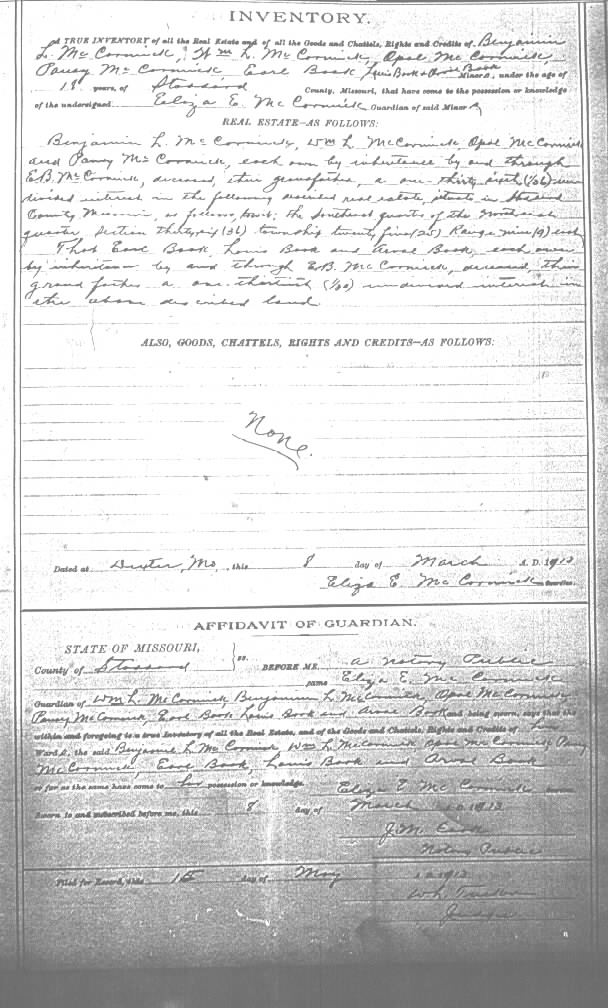 INVENTORY.
A TRUE INVENTORY of all the Real Estate and of all the Goods and Chattels, Rights and Credits of Benjamin
L. McCormick, Wm L. McCormick, Opal McCormick,
Pansy McCormick, Earl Book, Louis Book & Book Minors, under the age of
18 years, of Stoddard County, Missouri, that have come to the possession or knowledge
of the undersigned Eliza E. McCormick Guardian of said Minors
REAL ESTATE—AS FOLLOWS:
Benjamin L. McCormick, Wm L. McCormick Opal McCormick
and Pansy McCormick, each own by inheritance by and through
E.B. McCormick, deceased, their grandfather, a one-thirty sixth (1/36) un
divided interest in the following described real estate, situate in Stoddard
County Missouri, as follows, towit: the Southeast quarter of the
quarter Section thirty six (36) township twenty five (25) Range nine (9) east
That Earl Book, Louis Book and Arval Book, each own
by inheritance by and through E.B. McCormick, deceased their
grand father a one-thirtieth undivided interest in
the above described land.
ALSO, GOODS, CHATTELS, RIGHTS AND CREDITS—AS FOLLOWS:
None.
Dated at Dexter, Mo, this 8 day of March A. D. 1913
Eliza E. McCormick Guardian
AFFIDAVIT OF GUARDIAN.
STATE OF MISSOURI,
County of Stoddard ss. BEFORE ME a Notary Public
came Eliza E. McCormick
Guardian of Wm L. McCormick, Benjamin L. McCormick, Opal McCormick
Pansy McCormick, Earl Book Louis Book and Arval Book and being sworn, says that the
within and foregoing is a true Inventory of all the Real Estate, and of the Goods and Chattels, Rights and Credits of her
Wards, the said Benjamin L. McCormick Wm L. McCormick Opal McCormick Pansy
McCormick, Earl Book, Louis Book and Arval Book
so far as the same have come to her possession or knowledge. Eliza E. McCormick
Sworn to and subscribed before me, this 8 day of March A. D. 1913
J.M.
Notary Public
Filed for Record, this 15 day of May A. D. 1913
W.L.
Judge